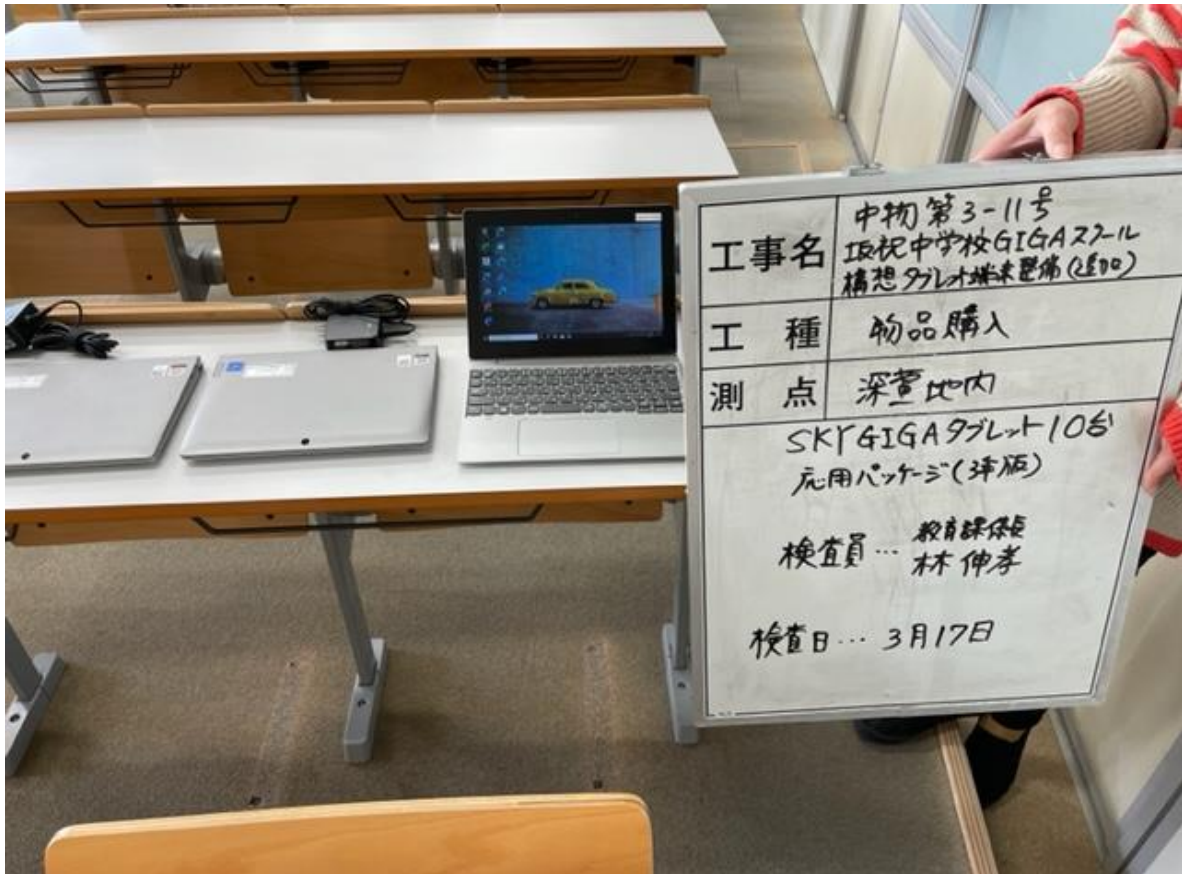 工事名
中物第3-11号
坂祝中学校GIGAスクール
構想タブレット端末整備(追加)
工種
物品購入
測点
深萱地内
SKYGIGAタブレット10台
応用パッケージ(3年版)
検査員…教育課係長
林伸孝
検査日…3月17日